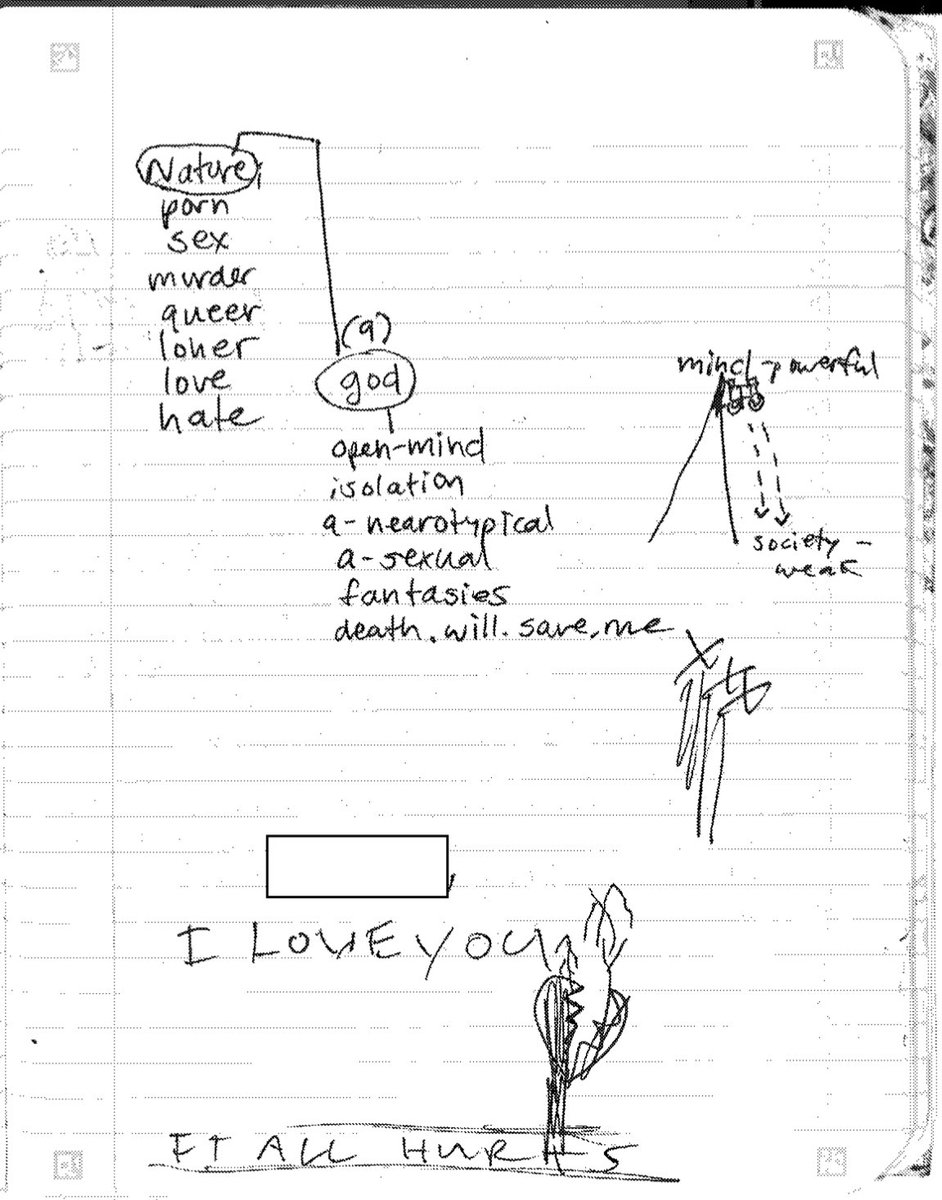 Nature,
porn
sex
murder
queer
loner
love
hate
(a)
god
open-mind
isolation
a-nearotypical
a-sexual
fantasies
death.will.save.me
mind-powerful
society-
weak
I LOVE YOU
IT ALL HURTS